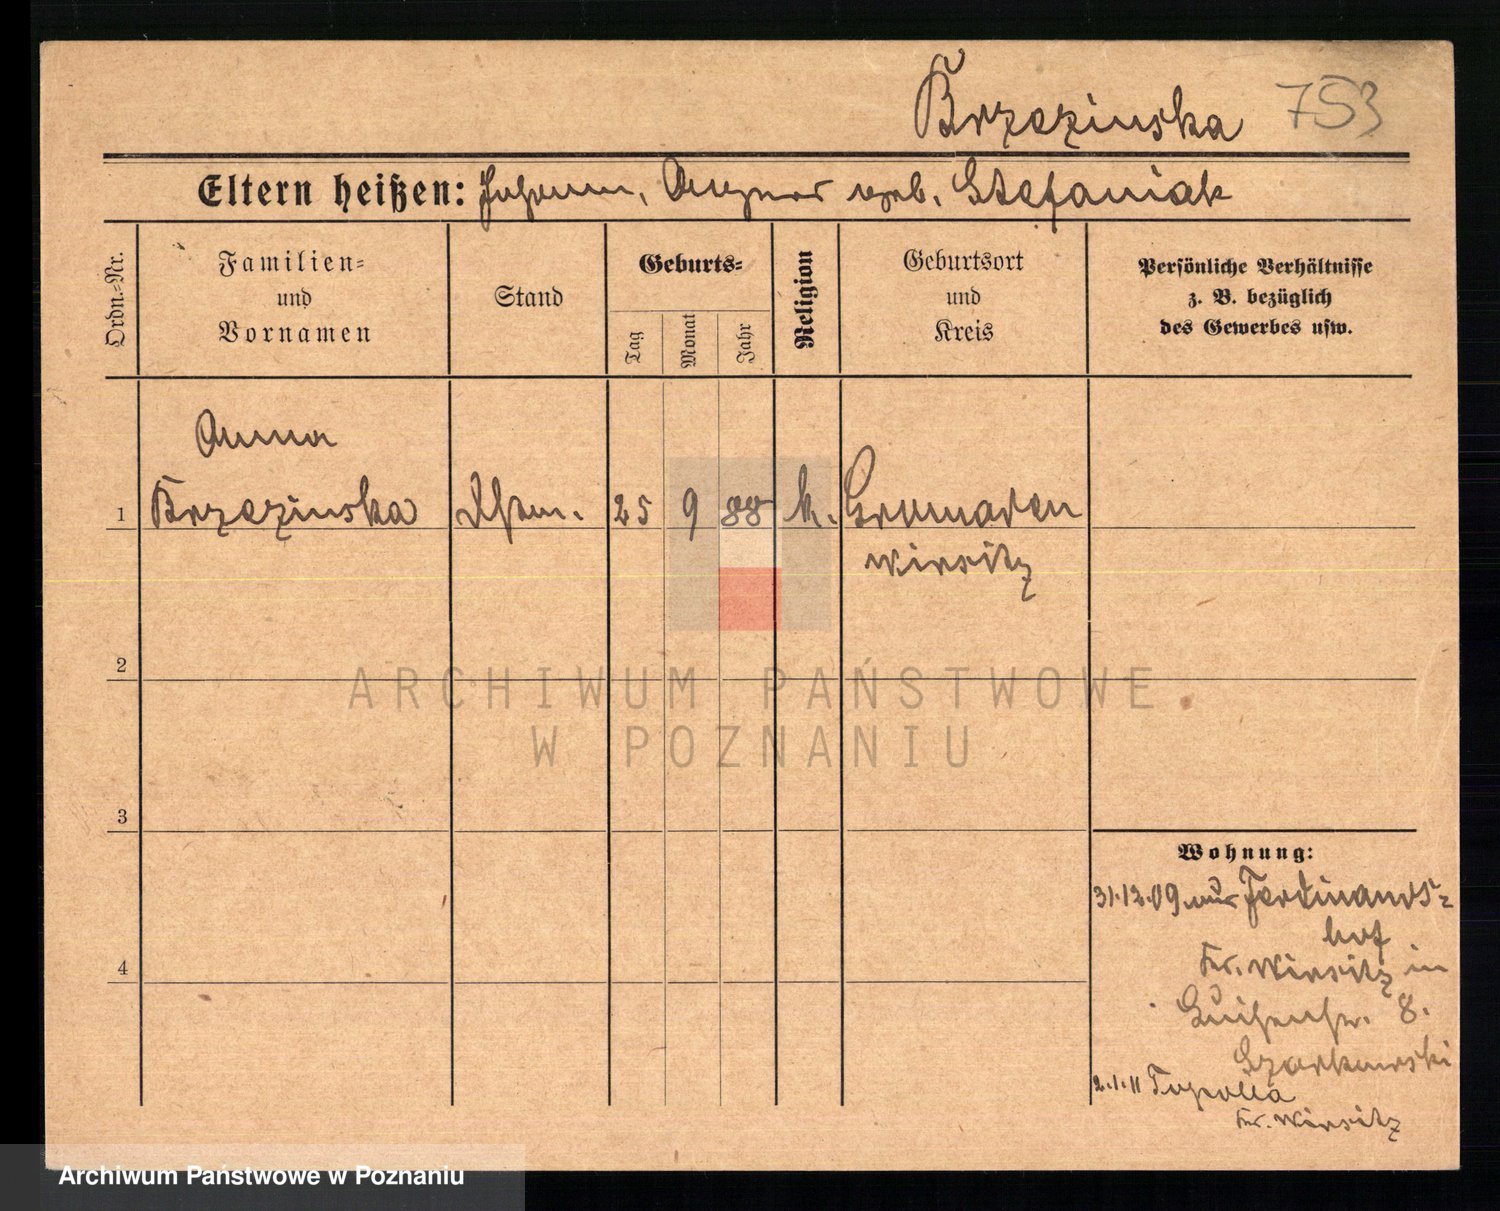 Brzezinska 753
Eltern heißen: Johann, Agnes geb. Stefaniak
Ordn.-Nr.
Familien-
und
Vornamen
Stand
Geburts-
Tag
Monat
Jahr
Religion
Geburtsort
und
Kreis
Persönliche Verhältnisse
z. B. bezüglich
des Gewerbes usw.
Anna
1 Brzezinska 25 9 88 k. Gromaden
Wirsitz
2
ARCHIWUM PAŃSTWOWE
W POZNANIU
3
Wohnung:
31.12.09 aus Ferdinands-
hof
Kr. Wirsitz in
8.
4
2.1.11 Topolla
Kr. Wirsitz
Archiwum Państwowe w Poznaniu